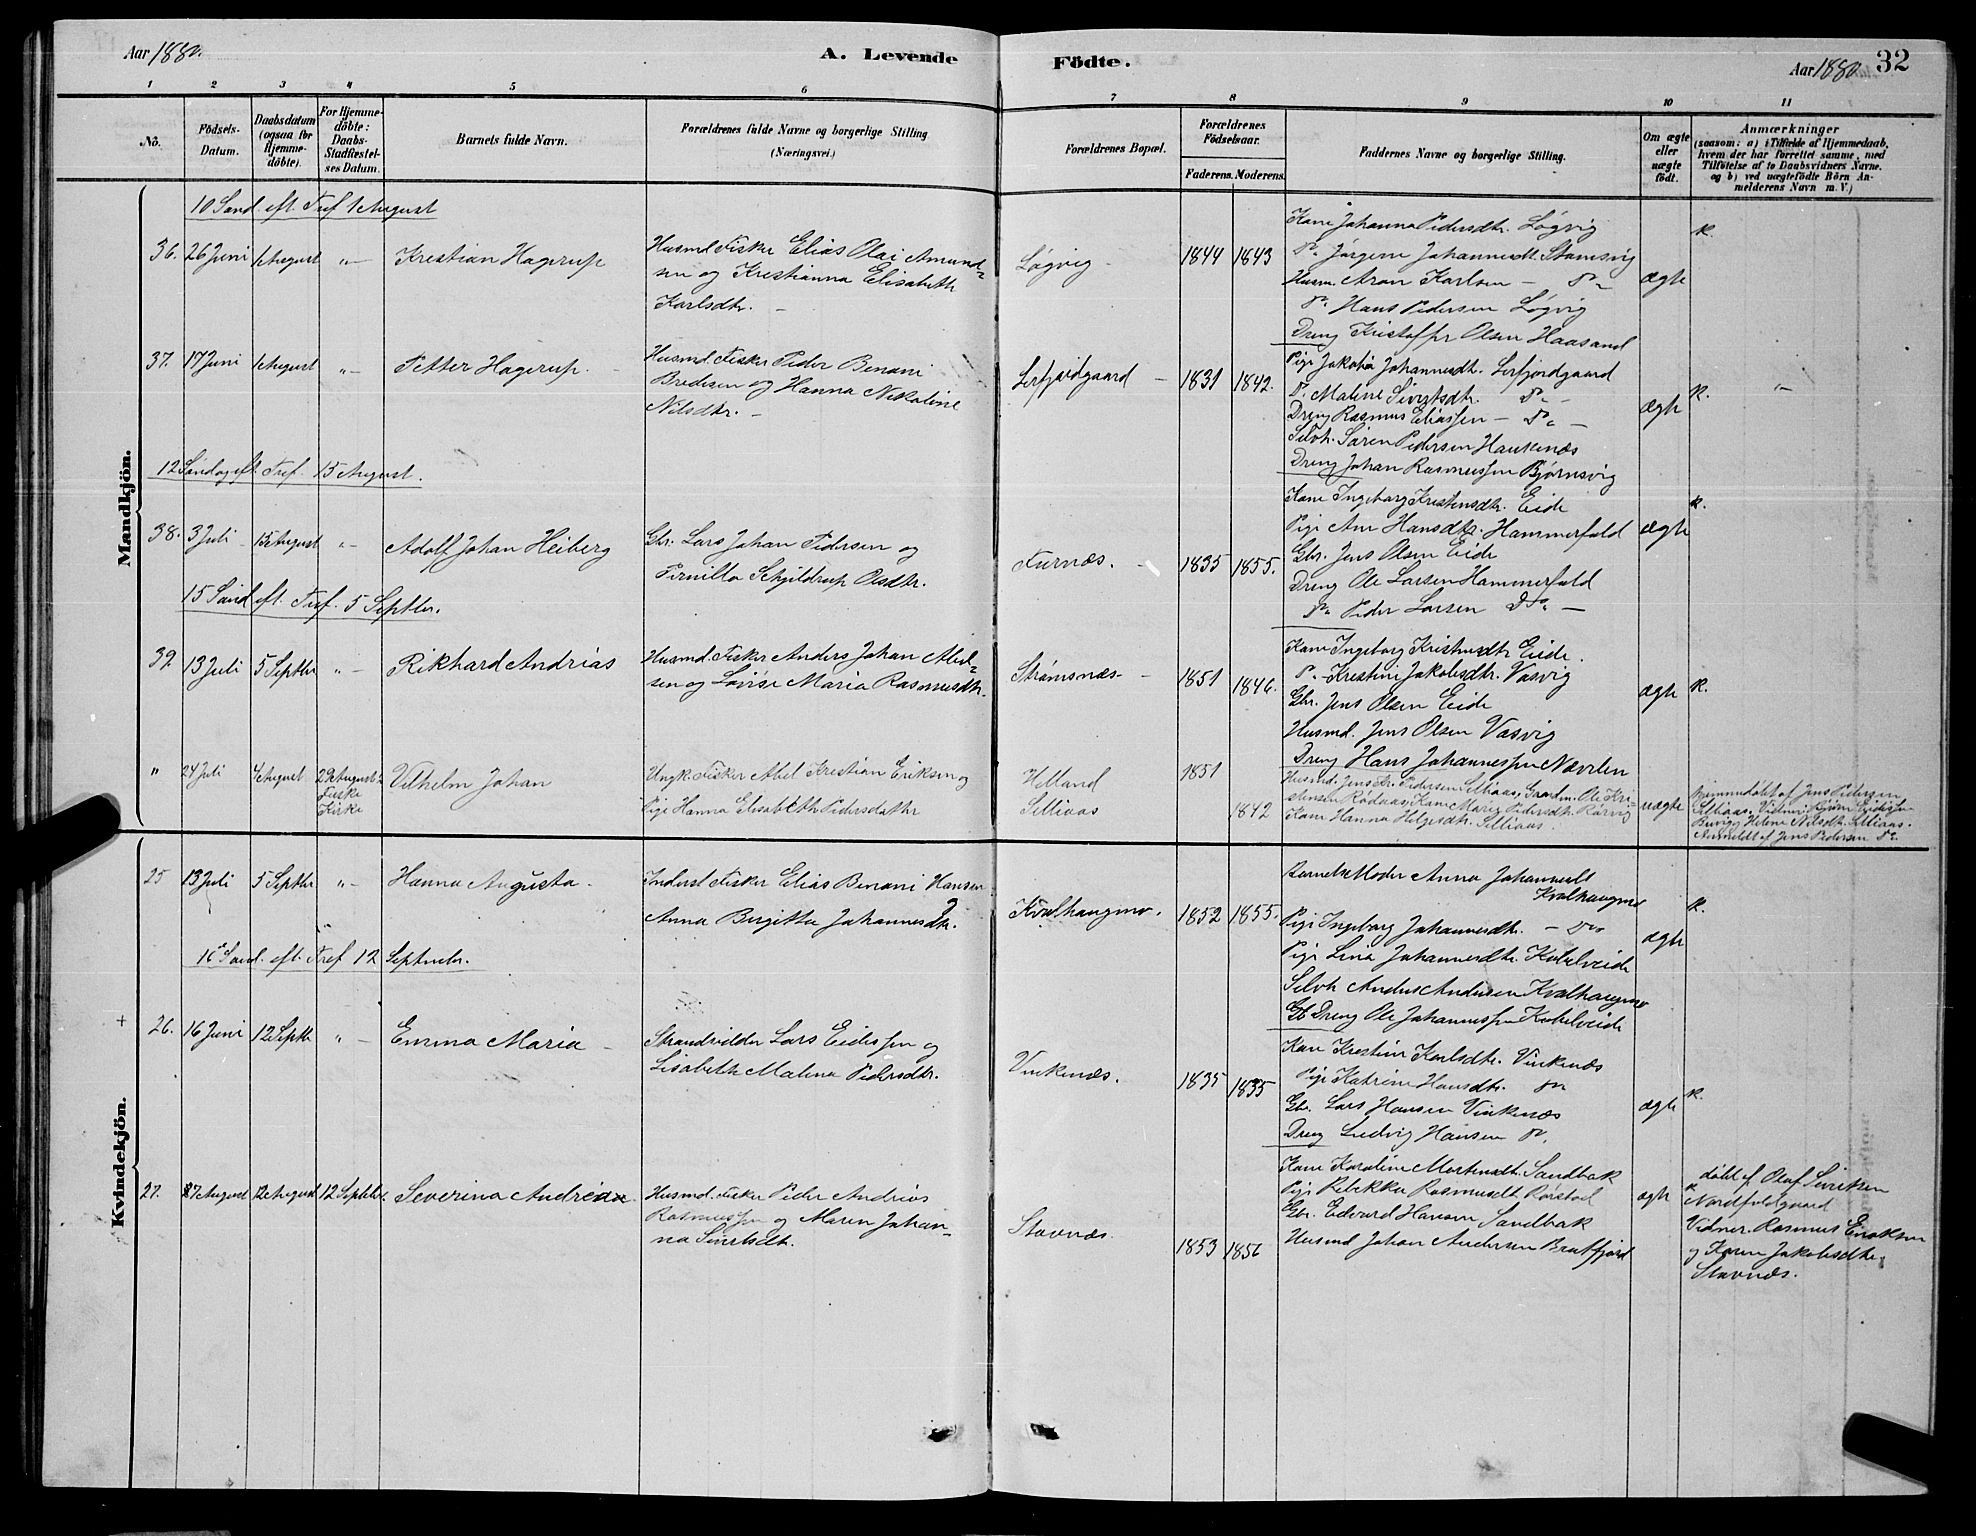 Aar 1880.
A. Levende
Födte.
Aar 1880
32
1
2
3
4
5
6
7
8
9
10
11
No.
Födsels-Datum.
Daabsdatum (ogsaa for Hjemme-döbte).
For Hjemme-döbte: Daabs-Stadfæstel-ses Datum.
Barnets fulde Navn.
Forældrenes fulde Navne og borgerlige Stilling
(Næringsvei.)
Forældrenes Bopæl.
Forældrenes Födselsaar.
Faderens.
Moderens.
Faddernes Navne og borgerlige Stilling.
Om ægte eller uægte födt.
Anmærkninger
(saasom: a) i Tilfælde af Hjemmedaab,
hvem der har forrettet samme, med
Tilföielse af to Daabsvidners Navne.
og b) ved uægtefödte Börn An-
melderens Navn m. V.)
Mandkjön.
10 Sønd. eft. Tref 1 August
36. 26 Juni 1 August " Kristian Hagerup
Husmd. Fisker Elias Olai Amund-
sen og Kristianna Elisabeth
Karlsdtr.
Løgvig
1844 1843
Kone Johanna Pedersdtr. Løgvig
Do Jørgine Johannesdtr. Stamsvig
Husm. Aron Karlsen - Do
Do Hans Pedersen Løgvig
Dreng Kristoffer Olsen Haasand
ægte
k.
37. 17 Juni 1 August " Petter Hagerup.
Husmd. Fisker Peder Benoni
Bredesen og Hanna Nikoline
Nilsdtr.
Lerfjordgaard
1831 1842.
Pige Jakobia Johannesdtr. Lerfjordgaard
Do. Maline Sivertsdtr. Do
Dreng Rasmus Eliassen - Do -
Selvh. Sören Pedersen Haukenæs
Dreng Johan Rasmussen Bjørnsvig
ægte
k.
"
12 Søndag eft. Tref. 15 August.
38. 3 Juli 15 August " Adolf Johan Heiberg
Gbr. Lars Johan Pedersen og
Pernilla Schjeldrup Olsdtr.
Furnæs.
1835 1855.
Kone Ingeborg Kristensdtr. Eide
Pige Ane Hansdtr. Hammerfald
Gbr. Jens Olsen Eide
Dreng Ole Larsen Hammerfald
Do Peder Larsen Do
ægte
k.
15 Sønd eft. Tref. 5 Septbr.
39. 13 Juli 5 Septbr " Rikhard Andreas
Husmd. Fisker Anders Johan Abel-
sen og Lovise Maria Rasmusdtr.
Strømsnæs
1851 1846.
Kone Ingeborg Kristensdtr. Eide.
Do Krestine Jakobsdtr. Vasvig
Gbr. Jens Olsen Eide
Husmd. Jens Olsen Vasvig
Dreng Hans Johannessen Nævelen
ægte
k.
" 24 Juli 4 August 29 August i Fiske Kirke Vilhelm Johan
Ungk. Fisker Abel Kristian Eriksen og
Pige Hanna Elisabeth Pedersdatter
Helland
Selliaas
1851
1842
Husmd. Jens Kr. Pedersen Selliaas, Grdm. Ole Kri-
stensen Rödaas, Kone Marie Pedersdtr. Rørvig
Kone Hanna Helgesdtr. Selliaas.
uægte
Hjemmedøbt af Jens Pedersen
Selliaas, Vidner: Bjørn
Helene Nilsdtr. Selliaas.
Anmeldt af Jens Pedersen Do
Kvindekjön.
25 13 Juli 5 Septbr " Hanna Augusta
Inderst Fisker Elias Benoni Hansen
Anna Birgitta Johannesdtr.
Kvalhaugmo.
1852 1855.
Barnets Moder Anna Johannesdt
Kvalhaugmo
Pige Ingeborg Johannesdtr. - Do
Pige Lina Johannesdtr. Kobelveide
Selvh Anders Andersen Kvalhaugmo
Dreng Ole Johannessen Kobelveide
ægte
k.
16 Sønd. eft. Tref 12 Septmbr.
+ 26. 16 Juni 12 Septbr " Emma Maria
Strandsidder Lars Eidissen og
Lisabeth Malena Pedersdtr.
Vinkenæs.
1835 1835
Kone Krestine Karlsdtr. Vinkenæs
Pige Katrine Hansdtr. Do
Gbr. Lars Hansen Vinkenæs
Dreng Ludvig Hansen Do.
ægte
k.
27. 7 August 12 August 12 Septbr. Severina Andrea
Husmd. Fisker Peder Andreas
Rasmussen og Maren Johan-
na Sivertsdt.
Stavnæs.
1853 1856
Kone Karoline Mortensdt. Sandbak
Pige Rebekka Rasmusdt. Rørstad
Gbr. Edvard Hansen Sandbak
Husmd Johan Andersen Bratfjord
ægte
døbt af Olaf Sivertsen
Nordfoldgaard
Vidner. Rasmus Enoksen
og Karen Jakobsdtr.
Stavnæs.